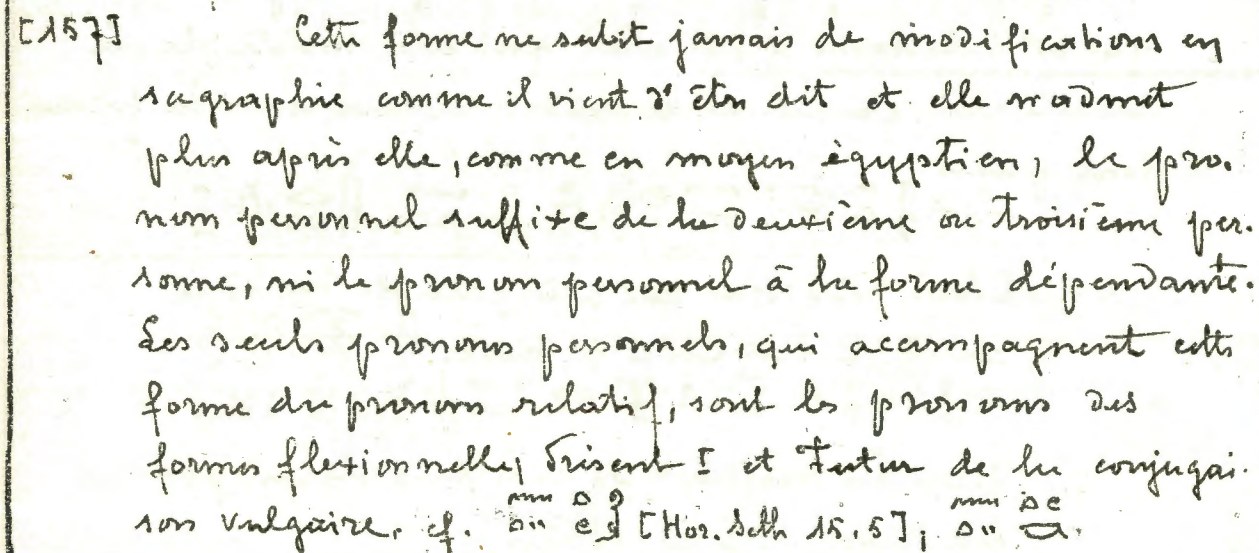 [157] Cette forme ne subit jamais de modifications en
sa graphie comme il vient d'être dit et elle n'admet
plus après elle, comme en moyen égyptien, le pro-
nom personnel suffixe de la deuxième ou troisième per-
sonne, ni le pronom personnel à la forme dépendante.
Les seuls pronoms personnels, qui accompagnent cette
forme du pronom relatif, sont les pronoms des
formes flexionnelles Présent I et Futur de la conjugai-
son vulgaire. cf. [Hor. Seth 15.5];